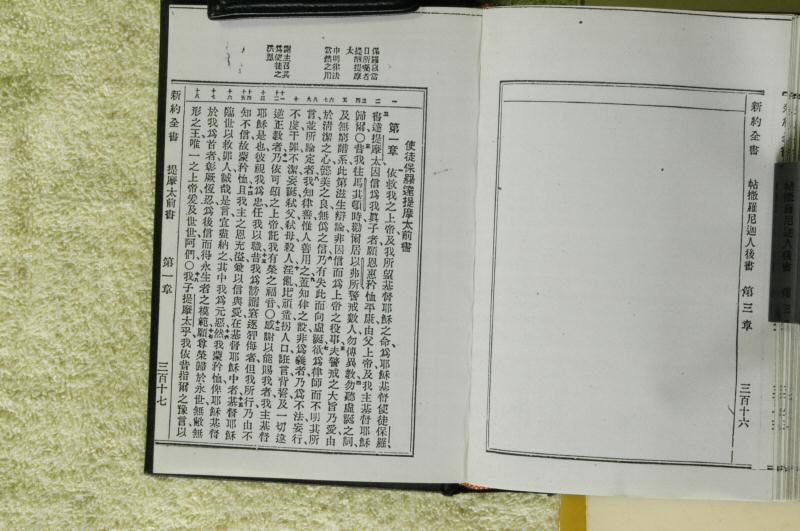 新約全書
帖撒羅尼迦人後書
第三章
三百十六
保羅以當
日所囑者
提醒提摩
太
申明律法
當然之用
謝主召其
為使徒之
洪恩
使徒保羅達提摩太前書
第一章
依救我之上帝及我所望基督耶穌之命為耶穌基督使徒保羅
書達提摩太因信為我眞子者願恩惠矜恤平康由父上帝及我主基督耶穌
歸爾○昔我往馬其頓時勸爾居以弗所警戒數人勿傳異教勿聽虛誕之詞
及無窮譜系此第滋生辯論非因信而為上帝之役耶夫警戒之大旨乃愛由
於清潔之心懿美之良無偽之信乃有失此而向虛誕欲為律師而不明其所
言並所論定者我知律善惟人善用之蓋知律之設非為義者乃為不法妄行
不虔干罪不潔妄誕弒父弒母殺人淫亂比頑童拐人口誑言背誓及一切違
逆正教者乃依可頌之上帝託我有榮之福音○感謝以能賜我者我主基督
耶穌是也彼視我為忠任我以職昔我為謗讟衰逐狎侮者但我所行乃由不
知不信故蒙矜恤且我主之恩充溢愛以信與愛在基督耶穌中者基督耶穌
臨世以救罪人誠哉是言宜盡納之其中我為元惡然我蒙矜恤俾耶穌基督
於我為首者彰厥恆忍為後信而得永生者之模範願尊榮歸於永世無敝無
形之王唯一之上帝爰及世世阿們○我子提摩太乎我依昔指爾之豫言以
新約全書
提摩太前書
第一章
三百十七